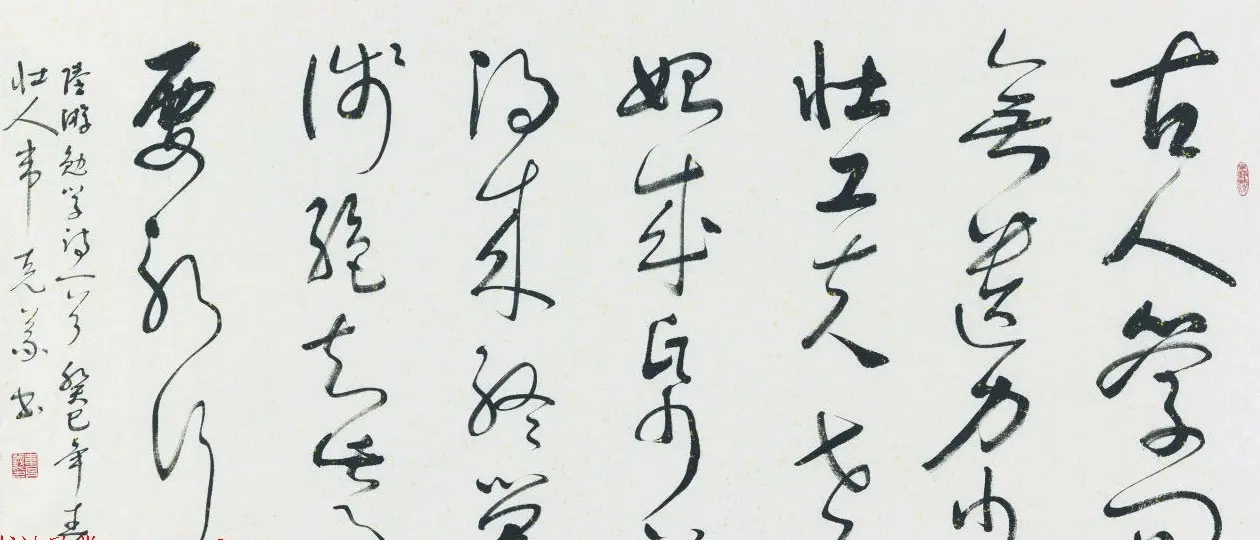 古人学问
無遺力少
壮工夫老
始成帋上
得来终觉
浅绝知此事
要躬行
陸游勉学诗一首 癸巳年春
壮人韦克義书